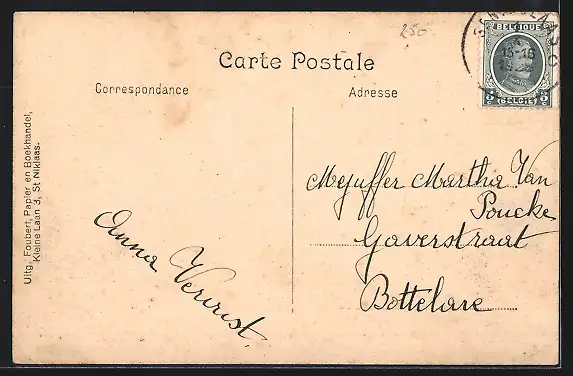 250
BELGIQUE
3 BELGIË 3
Carte Postale
Correspondance
Adresse
Uitg. Foubert, Papier en Boekhandel,
Kleine Laan 3, St Niklaas.
Mejuffer Martha Van
Poucke
Gaverstraat
Bottelare
Anna Verurst.